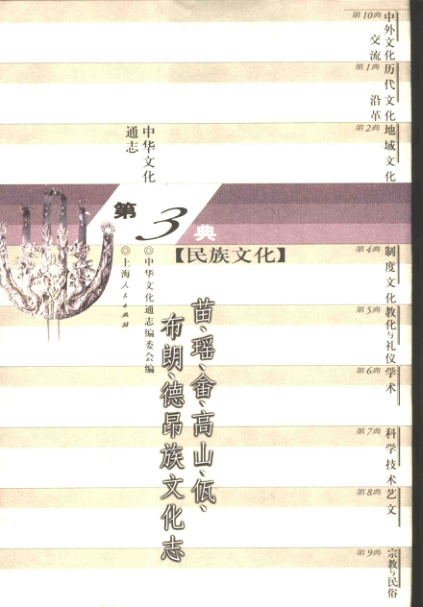 第10典
中外文化
交流
第1典
历代文化
沿革
第2典
地域文化
中华文化
通志
第3典
【民族文化】
◎中华文化通志编委会编
◎上海人民出版社
苗、瑶、畲、高山、佤、
布朗、德昂族文化志
第4典
制度文化
第5典
教化与礼仪
第6典
学术
第7典
科学技术
第8典
艺文
第9典
宗教与民俗